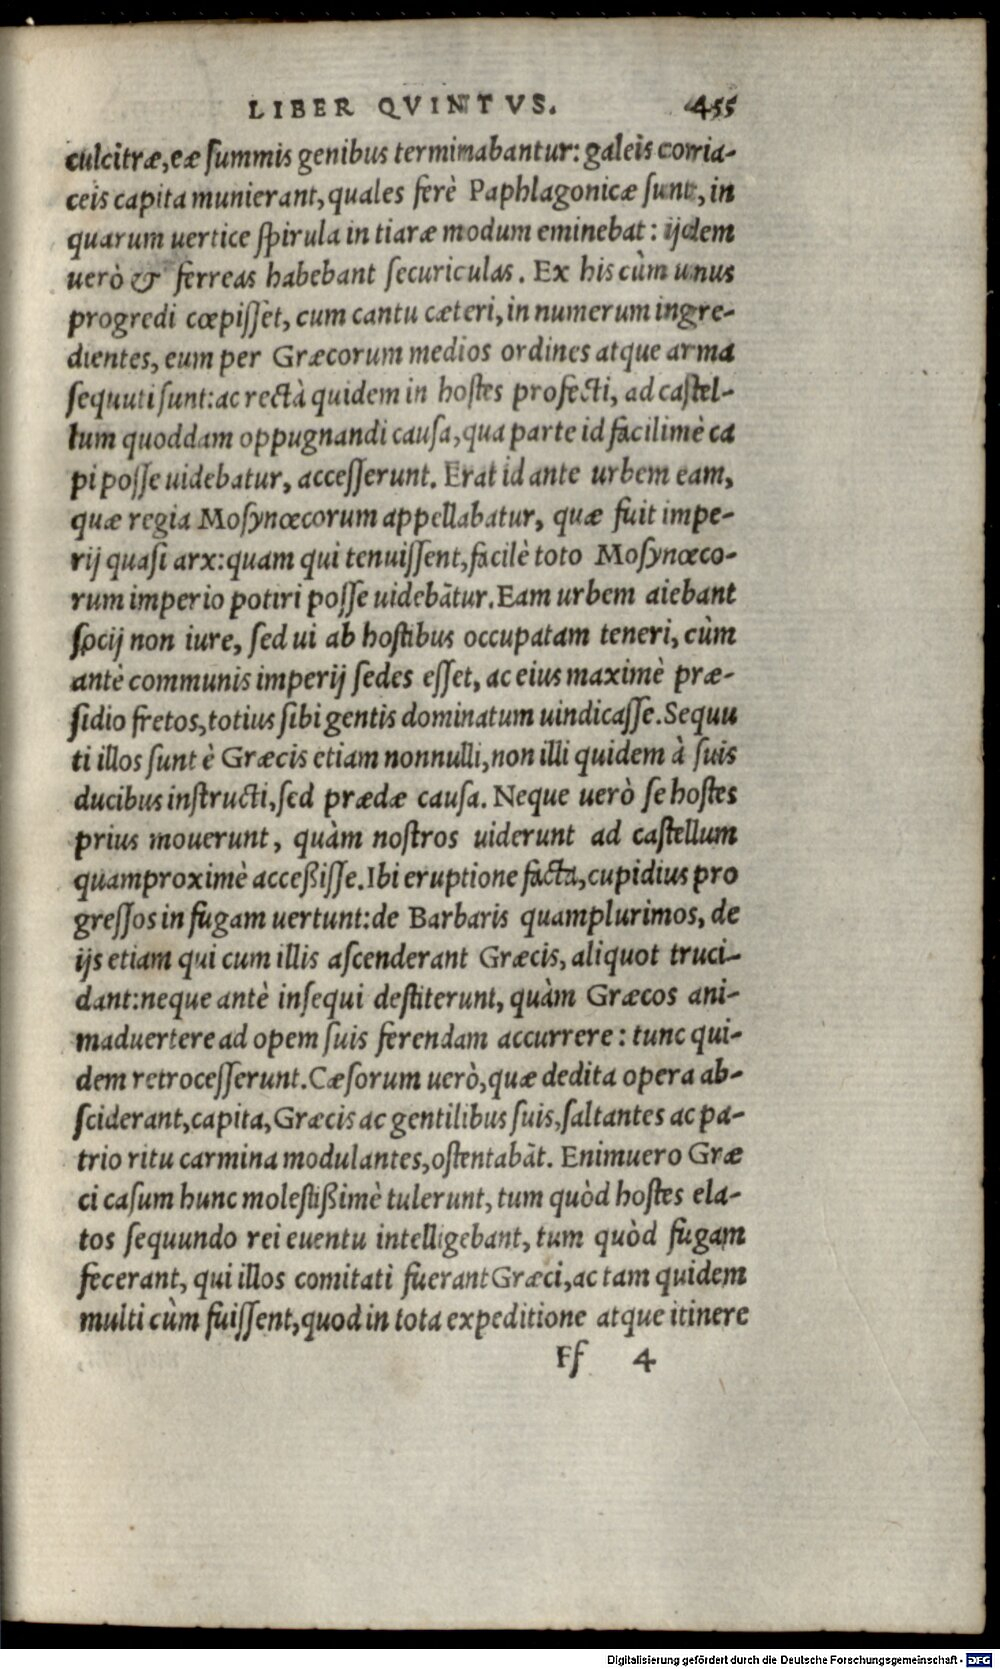 LIBER QVINTVS. 455
culcitræ, eæ ſummis genibus terminabantur: galeis corria-
ceis capita munierant, quales ferè Paphlagonicæ ſunt, in
quarum uertice ſpirula in tiaræ modum eminebat: ijdem
uerò & ferreas habebant ſecuriculas. Ex his cùm unus
progredi cœpiſſet, cum cantu cæteri, in numerum ingre-
dientes, eum per Græcorum medios ordines atque arma
ſequuti ſunt: ac rectà quidem in hoſtes profecti, ad caſtel-
lum quoddam oppugnandi cauſa, qua parte id facilimè ca
pi poſſe uidebatur, acceſſerunt. Erat id ante urbem eam,
quæ regia Moſynœcorum appellabatur, quæ fuit impe-
rij quaſi arx: quam qui tenuiſſent, facilè toto Moſynœco-
rum imperio potiri poſſe uidebãtur. Eam urbem aiebant
ſocij non iure, ſed ui ab hoſtibus occupatam teneri, cùm
antè communis imperij ſedes eſſet, ac eius maximè præ-
ſidio fretos, totius ſibi gentis dominatum uindicaſſe. Sequu
ti illos ſunt è Græcis etiam nonnulli, non illi quidem à ſuis
ducibus inſtructi, ſed prædæ cauſa. Neque uerò ſe hoſtes
prius mouerunt, quàm noſtros uiderunt ad caſtellum
quamproximè acceßiſſe. Ibi eruptione facta, cupidius pro
greſſos in fugam uertunt: de Barbaris quamplurimos, de
ijs etiam qui cum illis aſcenderant Græcis, aliquot truci-
dant: neque antè inſequi deſtiterunt, quàm Græcos ani-
maduertere ad opem ſuis ferendam accurrere: tunc qui-
dem retroceſſerunt. Cæſorum uerò, quæ dedita opera ab-
ſciderant, capita, Græcis ac gentilibus ſuis, ſaltantes ac pa-
trio ritu carmina modulantes, oſtentabãt. Enimuero Græ
ci caſum hunc moleſtißimè tulerunt, tum quòd hoſtes ela-
tos ſequundo rei euentu intelligebant, tum quòd fugam
fecerant, qui illos comitati fuerant Græci, ac tam quidem
multi cùm fuiſſent, quod in tota expeditione atque itinere
Ff 4
Digitalisierung gefördert durch die Deutsche Forschungsgemeinschaft - DFG